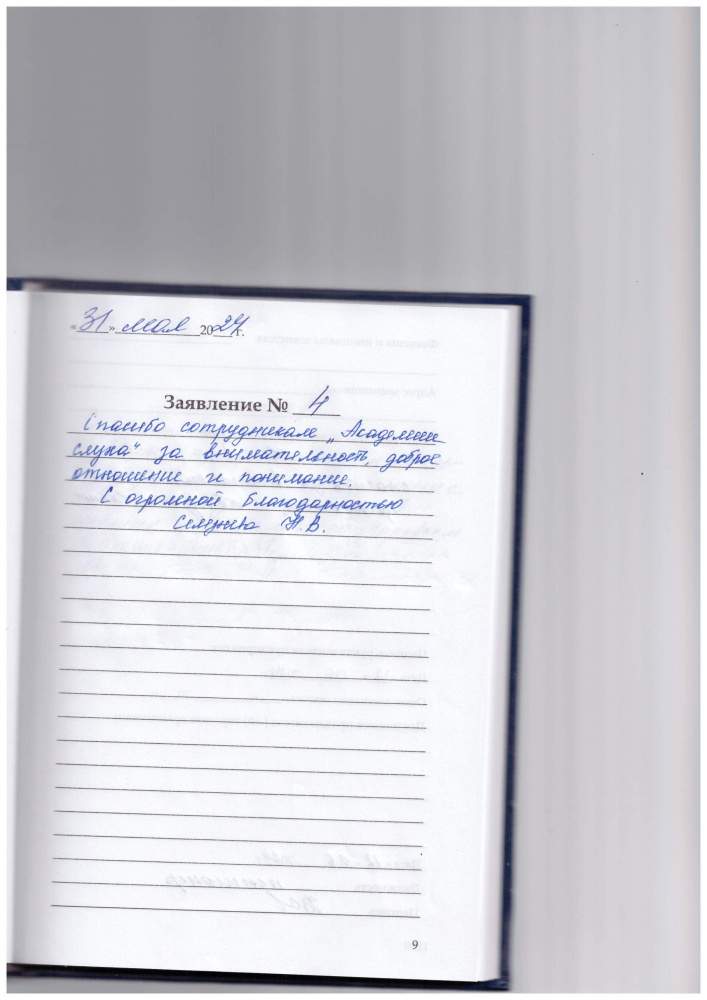 « 31 » мая 2024 г.
Заявление № 4
Спасибо сотрудникам „Академии
слуха“ за внимательность, доброе
отношение и понимание.
С огромной благодарностью
Н.В.
9